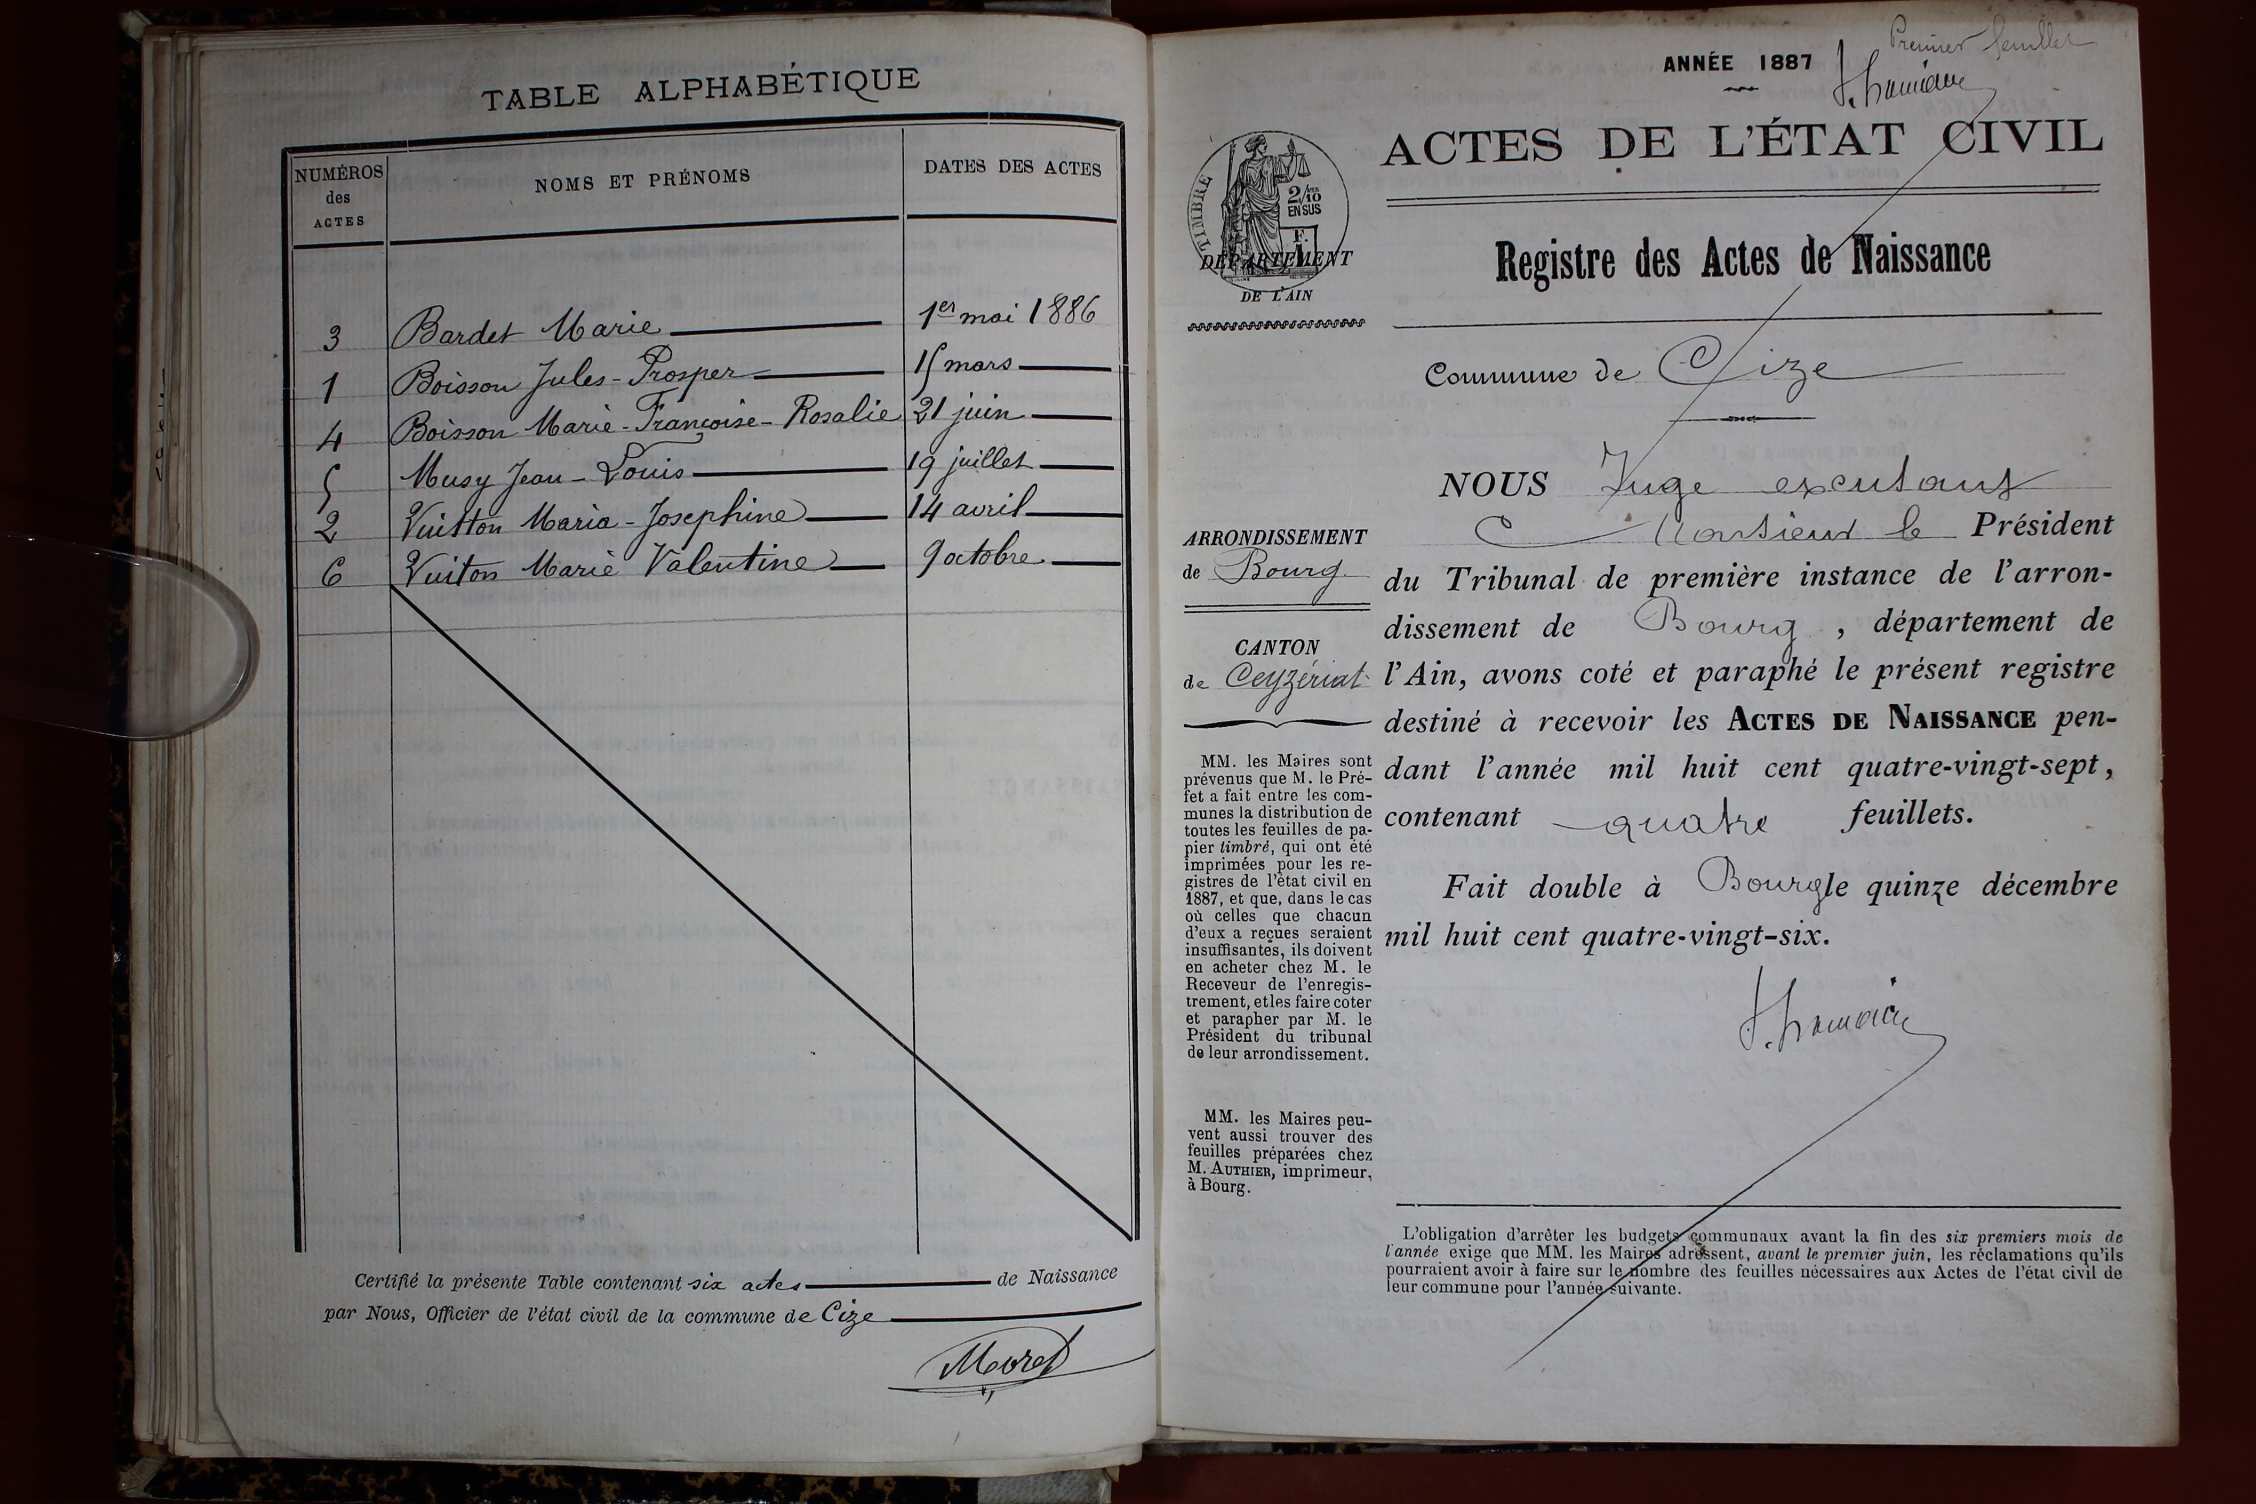 TABLE ALPHABÉTIQUE
NUMÉROS des ACTES
NOMS ET PRÉNOMS
DATES DES ACTES
3 Bardet Marie 1er mai 1886
1 Boisson Jules-Prosper 15 mars
4 Boisson Marie-Françoise-Rosalie 21 juin
5 Musy Jean-Louis 19 juillet
2 Vuitton Maria-Josephine 14 avril
6 Vuiton Marie Valentine 9 octobre
Certifié la présente Table contenant six actes de Naissance
par Nous, Officier de l'état civil de la commune de Cize
Premier feuillet
ANNÉE 1887
ACTES DE L'ÉTAT CIVIL
TIMBRE
2/10 EN SUS
DÉPARTEMENT
DE L'AIN
Registre des Actes de Naissance
Commune de Cize
ARRONDISSEMENT
de Bourg
CANTON
de Ceyzériat
MM. les Maires sont
prévenus que M. le Pré-
fet a fait entre les com-
munes la distribution de
toutes les feuilles de pa-
pier timbré, qui ont été
imprimées pour les re-
gistres de l'état civil en
1887, et que, dans le cas
où celles que chacun
d'eux a reçues seraient
insuffisantes, ils doivent
en acheter chez M. le
Receveur de l'enregis-
trement, et les faire coter
et parapher par M. le
Président du tribunal
de leur arrondissement.
MM. les Maires peu-
vent aussi trouver des
feuilles préparées chez
M. AUTHIER, imprimeur,
à Bourg.
NOUS Juge excusant
Monsieur le Président
du Tribunal de première instance de l'arron-
dissement de Bourg, département de
l'Ain, avons coté et paraphé le présent registre
destiné à recevoir les ACTES DE NAISSANCE pen-
dant l'année mil huit cent quatre-vingt-sept,
contenant quatre feuillets.
Fait double à Bourg le quinze décembre
mil huit cent quatre-vingt-six.
L'obligation d'arrêter les budgets communaux avant la fin des six premiers mois de
l'année exige que MM. les Maires adressent, avant le premier juin, les réclamations qu'ils
pourraient avoir à faire sur le nombre des feuilles nécessaires aux Actes de l'état civil de
leur commune pour l'année suivante.